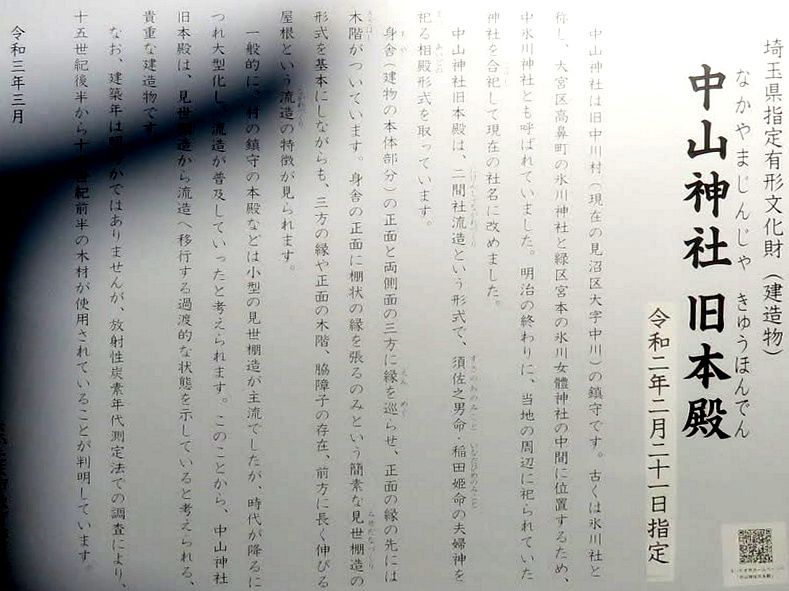 埼玉県指定有形文化財（建造物）
なかやまじんじゃ きゅうほんでん
中山神社 旧本殿
令和二年二月二十一日指定
中山神社は旧中川村（現在の見沼区大字中川）の鎮守です。古くは氷川社と
称し、大宮区高鼻町の氷川神社と緑区宮本の氷川女體神社の中間に位置するため、
中氷川神社とも呼ばれていました。明治の終わりに、当地の周辺に祀られていた
神社を合祀して現在の社名に改めました。
中山神社旧本殿は、二間社流造という形式で、須佐之男命・稲田姫命の夫婦神を
祀る相殿形式を取っています。
身舎（建物の本体部分）の正面と両側面の三方に縁を巡らせ、正面の縁の先には
木階がついています。身舎の正面に棚状の縁を張るのみという簡素な見世棚造の
形式を基本にしながらも、三方の縁や正面の木階、脇障子の存在、前方に長く伸びる
屋根という流造の特徴が見られます。
一般的に、村の鎮守の本殿などは小型の見世棚造が主流でしたが、時代が降るに
つれ大型化し、流造が普及していったと考えられます。このことから、中山神社
旧本殿は、見世棚造から流造へ移行する過渡的な状態を示していると考えられる、
貴重な建造物です。
なお、建築年は明らかではありませんが、放射性炭素年代測定法での調査により、
十五世紀後半から十七世紀前半の木材が使用されていることが判明しています。
令和三年三月